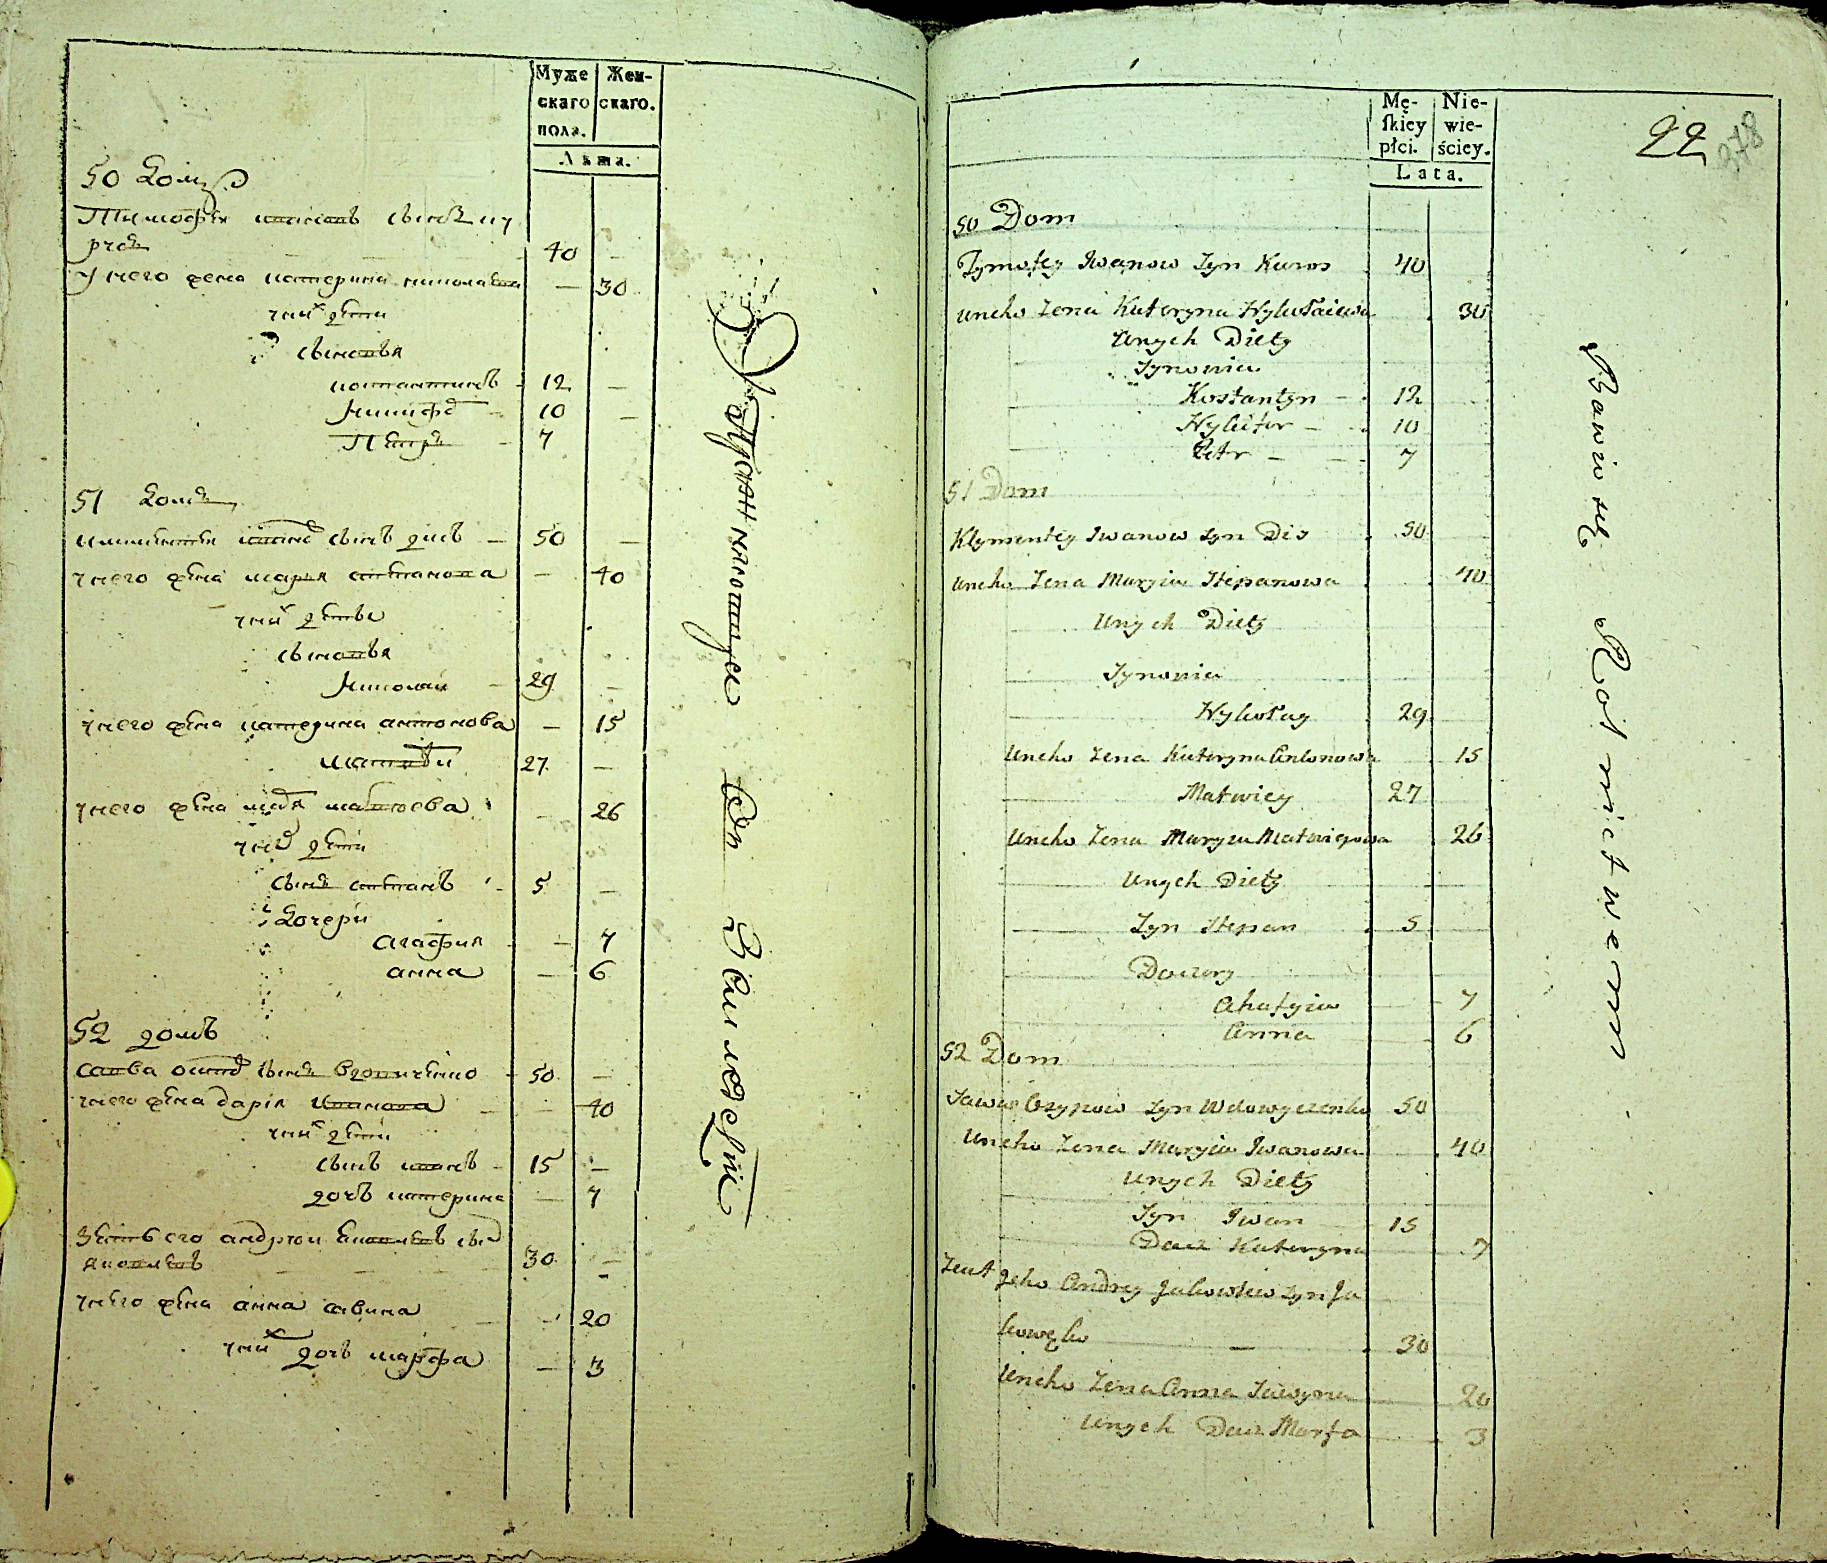 Муже
скаго
пола.
Жен-
скаго.
Лѣта.
50 домъ
Тимофѣй ивановъ сынъ ку
росъ 40
у него жена катерина николаева 30
у них дети
сыновья
костантинъ 12
никифоръ 10
Петръ 7
51 домъ
климентей иванов сынъ дисъ 50
у него жена марья степанова 40
у них дети
сыновья
николай 29
у него жена катерина антонова 15
матвѣй 27
у него жена марья матвеева 26
у них дети
сынъ степанъ 5
дочери
агафия 7
анна 6
52 домъ
савва осипов сынъ вдовиченко 50
у него жена дарія иванова 40
у них дети
сынъ иванъ 15
дочь катерина 7
зять его андрей яковлевъ сын
яковлевъ 30
у него жена анна савина 20
у них дочь марфа 3
от земледелия
Mę-
skiey
płci.
Nie-
wie-
ściey.
Lata.
22
378
50 Dom
Tymofey Iwanow Syn Kuros 40
Uneho Zena Kateryna Nykołaiewa 30
Unych Diety
Synowia
Kostantyn 12
Nykifor 10
Petr 7
51 Dom
Klymentey Iwanow Syn Dis 50
Uneho Zena Maryia Stepanowa 40
Unych Diety
Synowia
Nykołay 29
Uneho Zena Kateryna Antonowa 15
Matwiey 27
Uneho Zena Maryia Matwieiowa 26
Unych Diety
Syn Stepan 5
Doczery
Ahafyia 7
Anna 6
52 Dom
Sawa Osypow Syn Wdowyczenko 50
Uneho Zena Maryia Iwanowa 40
Unych Diety
Syn Iwan 15
Docz Kateryna 7
Zeat Jeho Andrey Jakowlew Syn Ja
kowęko 30
Uneho Zena Anna Sawyna 20
Unych Docz Marfa 3
Bawią się Rolnictwem